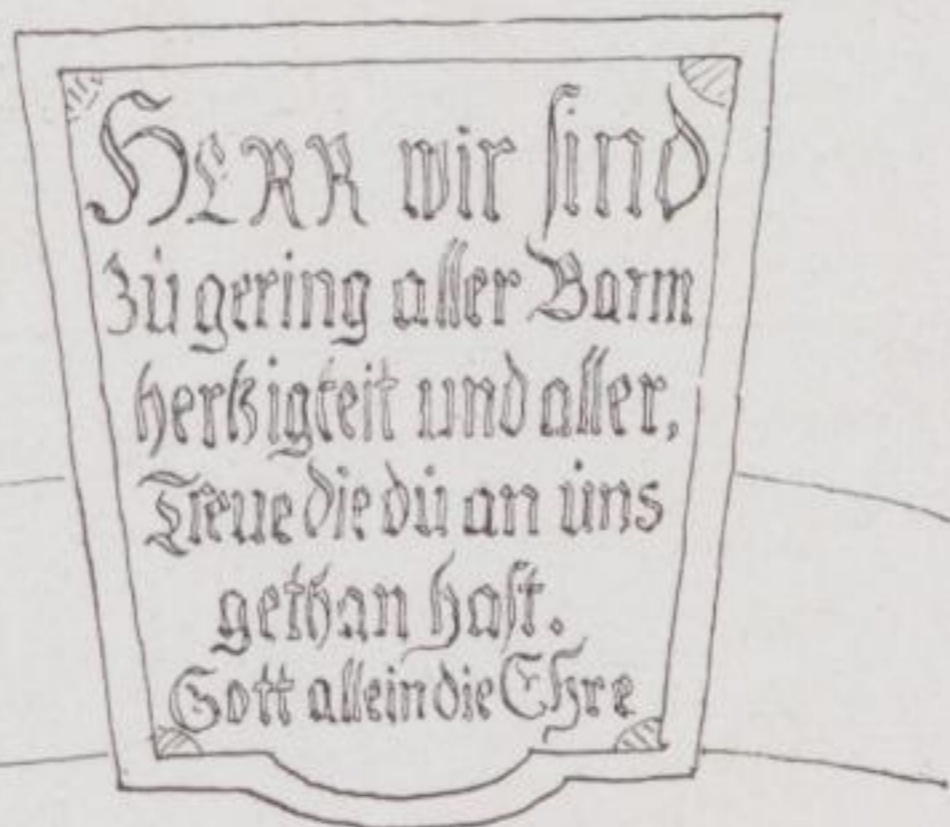 HERR wir sind
zu gering aller Barm
hertzigkeit und aller,
Treue die du an uns
gethan hast.
Gott allein die EHre